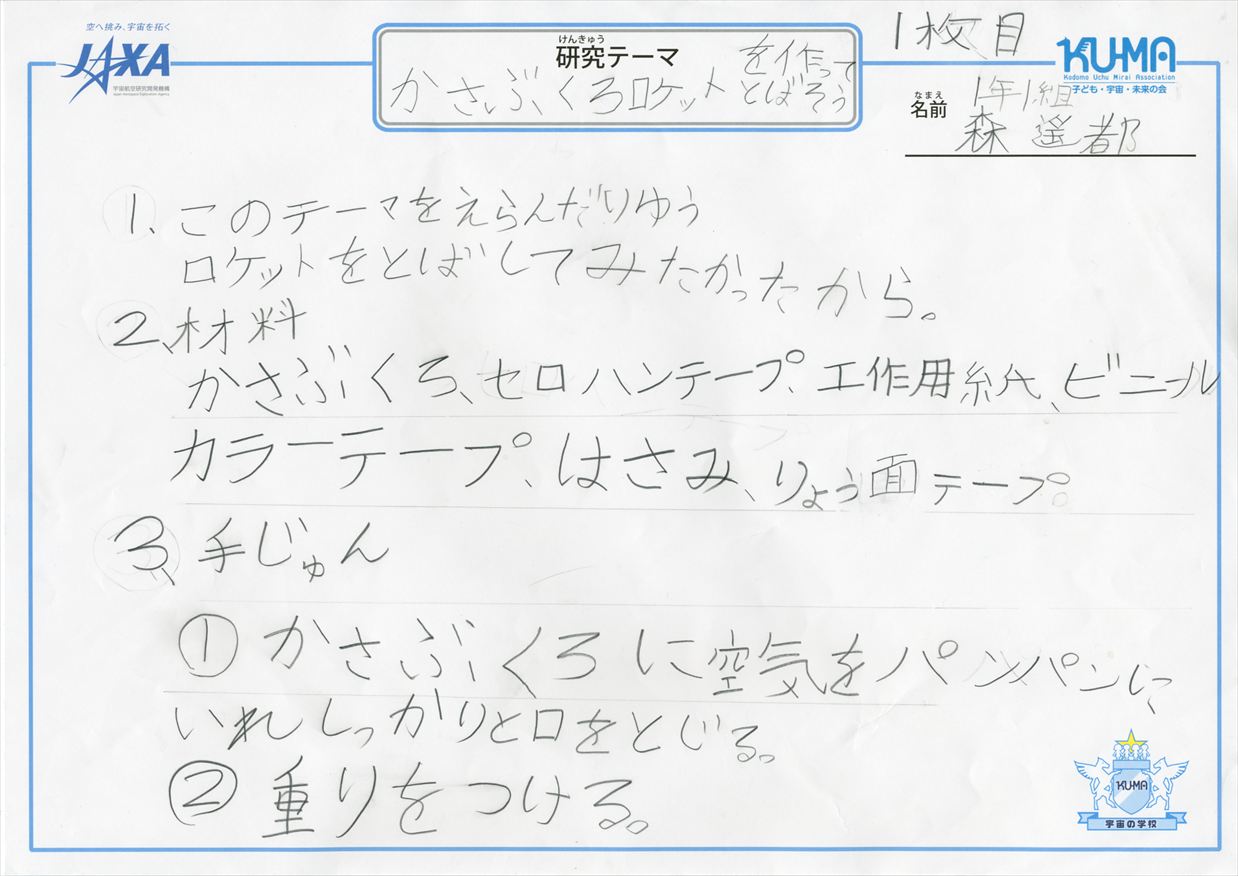 空へ挑み、宇宙を拓く
JAXA
宇宙航空研究開発機構
Japan Aerospace Exploration Agency
けんきゅう
研究テーマ
かさぶくろロケットを作ってとばそう
1枚目
KU-MA
Kodomo Uchu Mirai Association
子ども・宇宙・未来の会
なまえ
名前
1年1組
森遥都
1、このテーマをえらんだりゆう
ロケットをとばしてみたかったから。
2、材料
かさぶくろ、セロハンテープ、工作用紙、ビニール
カラーテープ、はさみ、りょう面テープ。
3、手じゅん
①かさぶくろに空気をパンパンにして
いれしっかりと口をとじる。
②重りをつける。
KU-MA
宇宙の学校